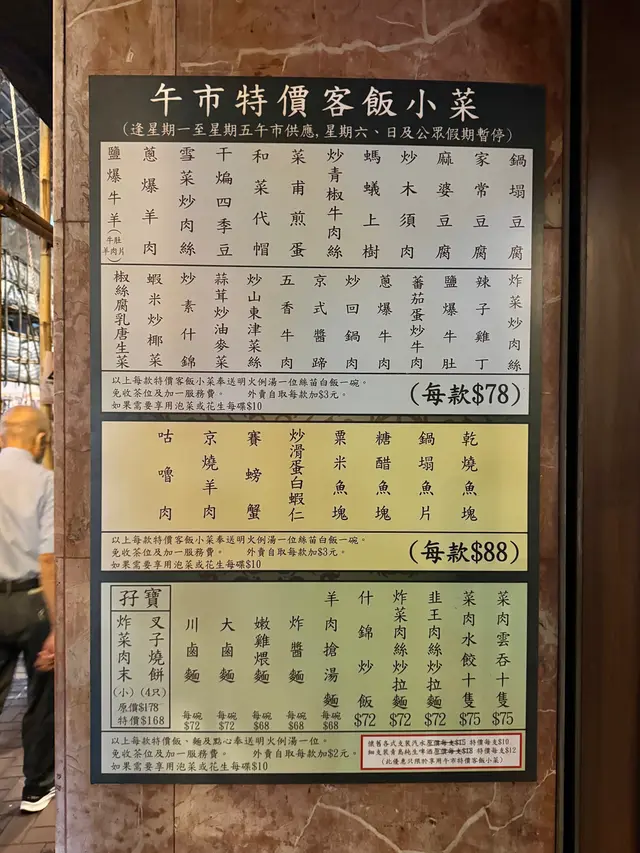 午市特價客飯小菜
(逢星期一至星期五午市供應,星期六、日及公眾假期暫停)
鍋塌豆腐
家常豆腐
麻婆豆腐
炒木須肉
螞蟻上樹
炒青椒牛肉絲
菜甫煎蛋
和菜代帽
干煸四季豆
雪菜炒肉絲
蔥爆羊肉
鹽爆牛羊(牛肚羊肉片)
炸菜炒肉絲
辣子雞丁
鹽爆牛肚
蕃茄蛋炒牛肉
蔥爆牛肉
炒回鍋肉
京式醬蹄
五香牛肉
炒山東津菜絲
蒜茸炒油麥菜
炒素什錦
蝦米炒椰菜
椒絲腐乳唐生菜
以上每款特價客飯小菜奉送明火例湯一位絲苗白飯一碗。
免收茶位及加一服務費。 外賣自取每款加$3元。
如果需要享用泡菜或花生每碟$10
(每款$78)
乾燒魚塊
鍋塌魚片
糖醋魚塊
粟米魚塊
炒滑蛋白蝦仁
賽螃蟹
京燒羊肉
咕嚕肉
以上每款特價客飯小菜奉送明火例湯一位絲苗白飯一碗。
免收茶位及加一服務費。 外賣自取每款加$3元。
如果需要享用泡菜或花生每碟$10
(每款$88)
菜肉雲吞十隻 $75
菜肉水餃十隻 $75
韭王肉絲炒拉麵 $72
炸菜肉絲炒拉麵 $72
什錦炒飯 $72
羊肉搶湯麵 每碗$68
炸醬麵 每碗$68
嫩雞煨麵 每碗$68
大鹵麵 每碗$72
川鹵麵 每碗$72
孖寶
叉子燒餅(4只)
炸菜肉末(小)
原價$178
特價$168
以上每款特價飯、麵及點心奉送明火例湯一位。
免收茶位及加一服務費。 外賣自取每款加$2元。
如果需要享用泡菜或花生每碟$10
懷舊各式支裝汽水原價每支$15 特價每支$10
細支裝青島純生啤酒原價每支$18 特價每支$12
(此優惠只限於享用午市特價客飯小菜)